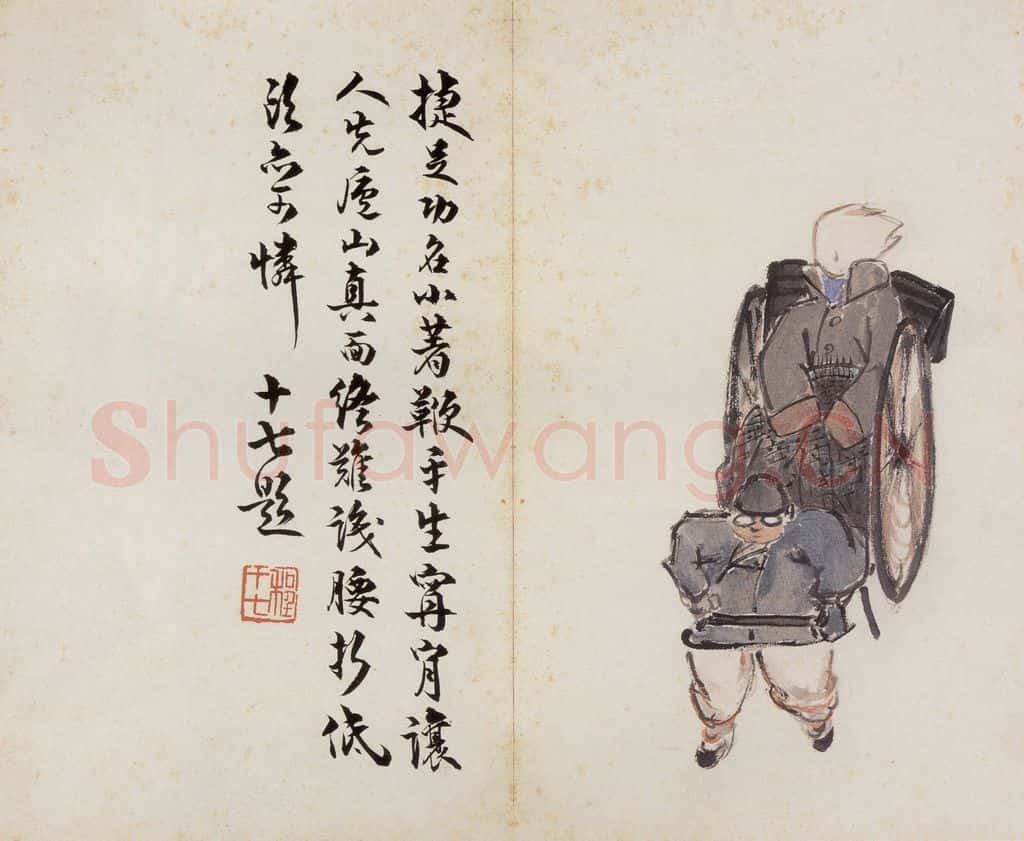 捷足功名小著鞭平生寧肯讓
人先廬山真面終難識腰折低
頭亦可憐 十七題
程十七
Shufawang.cn